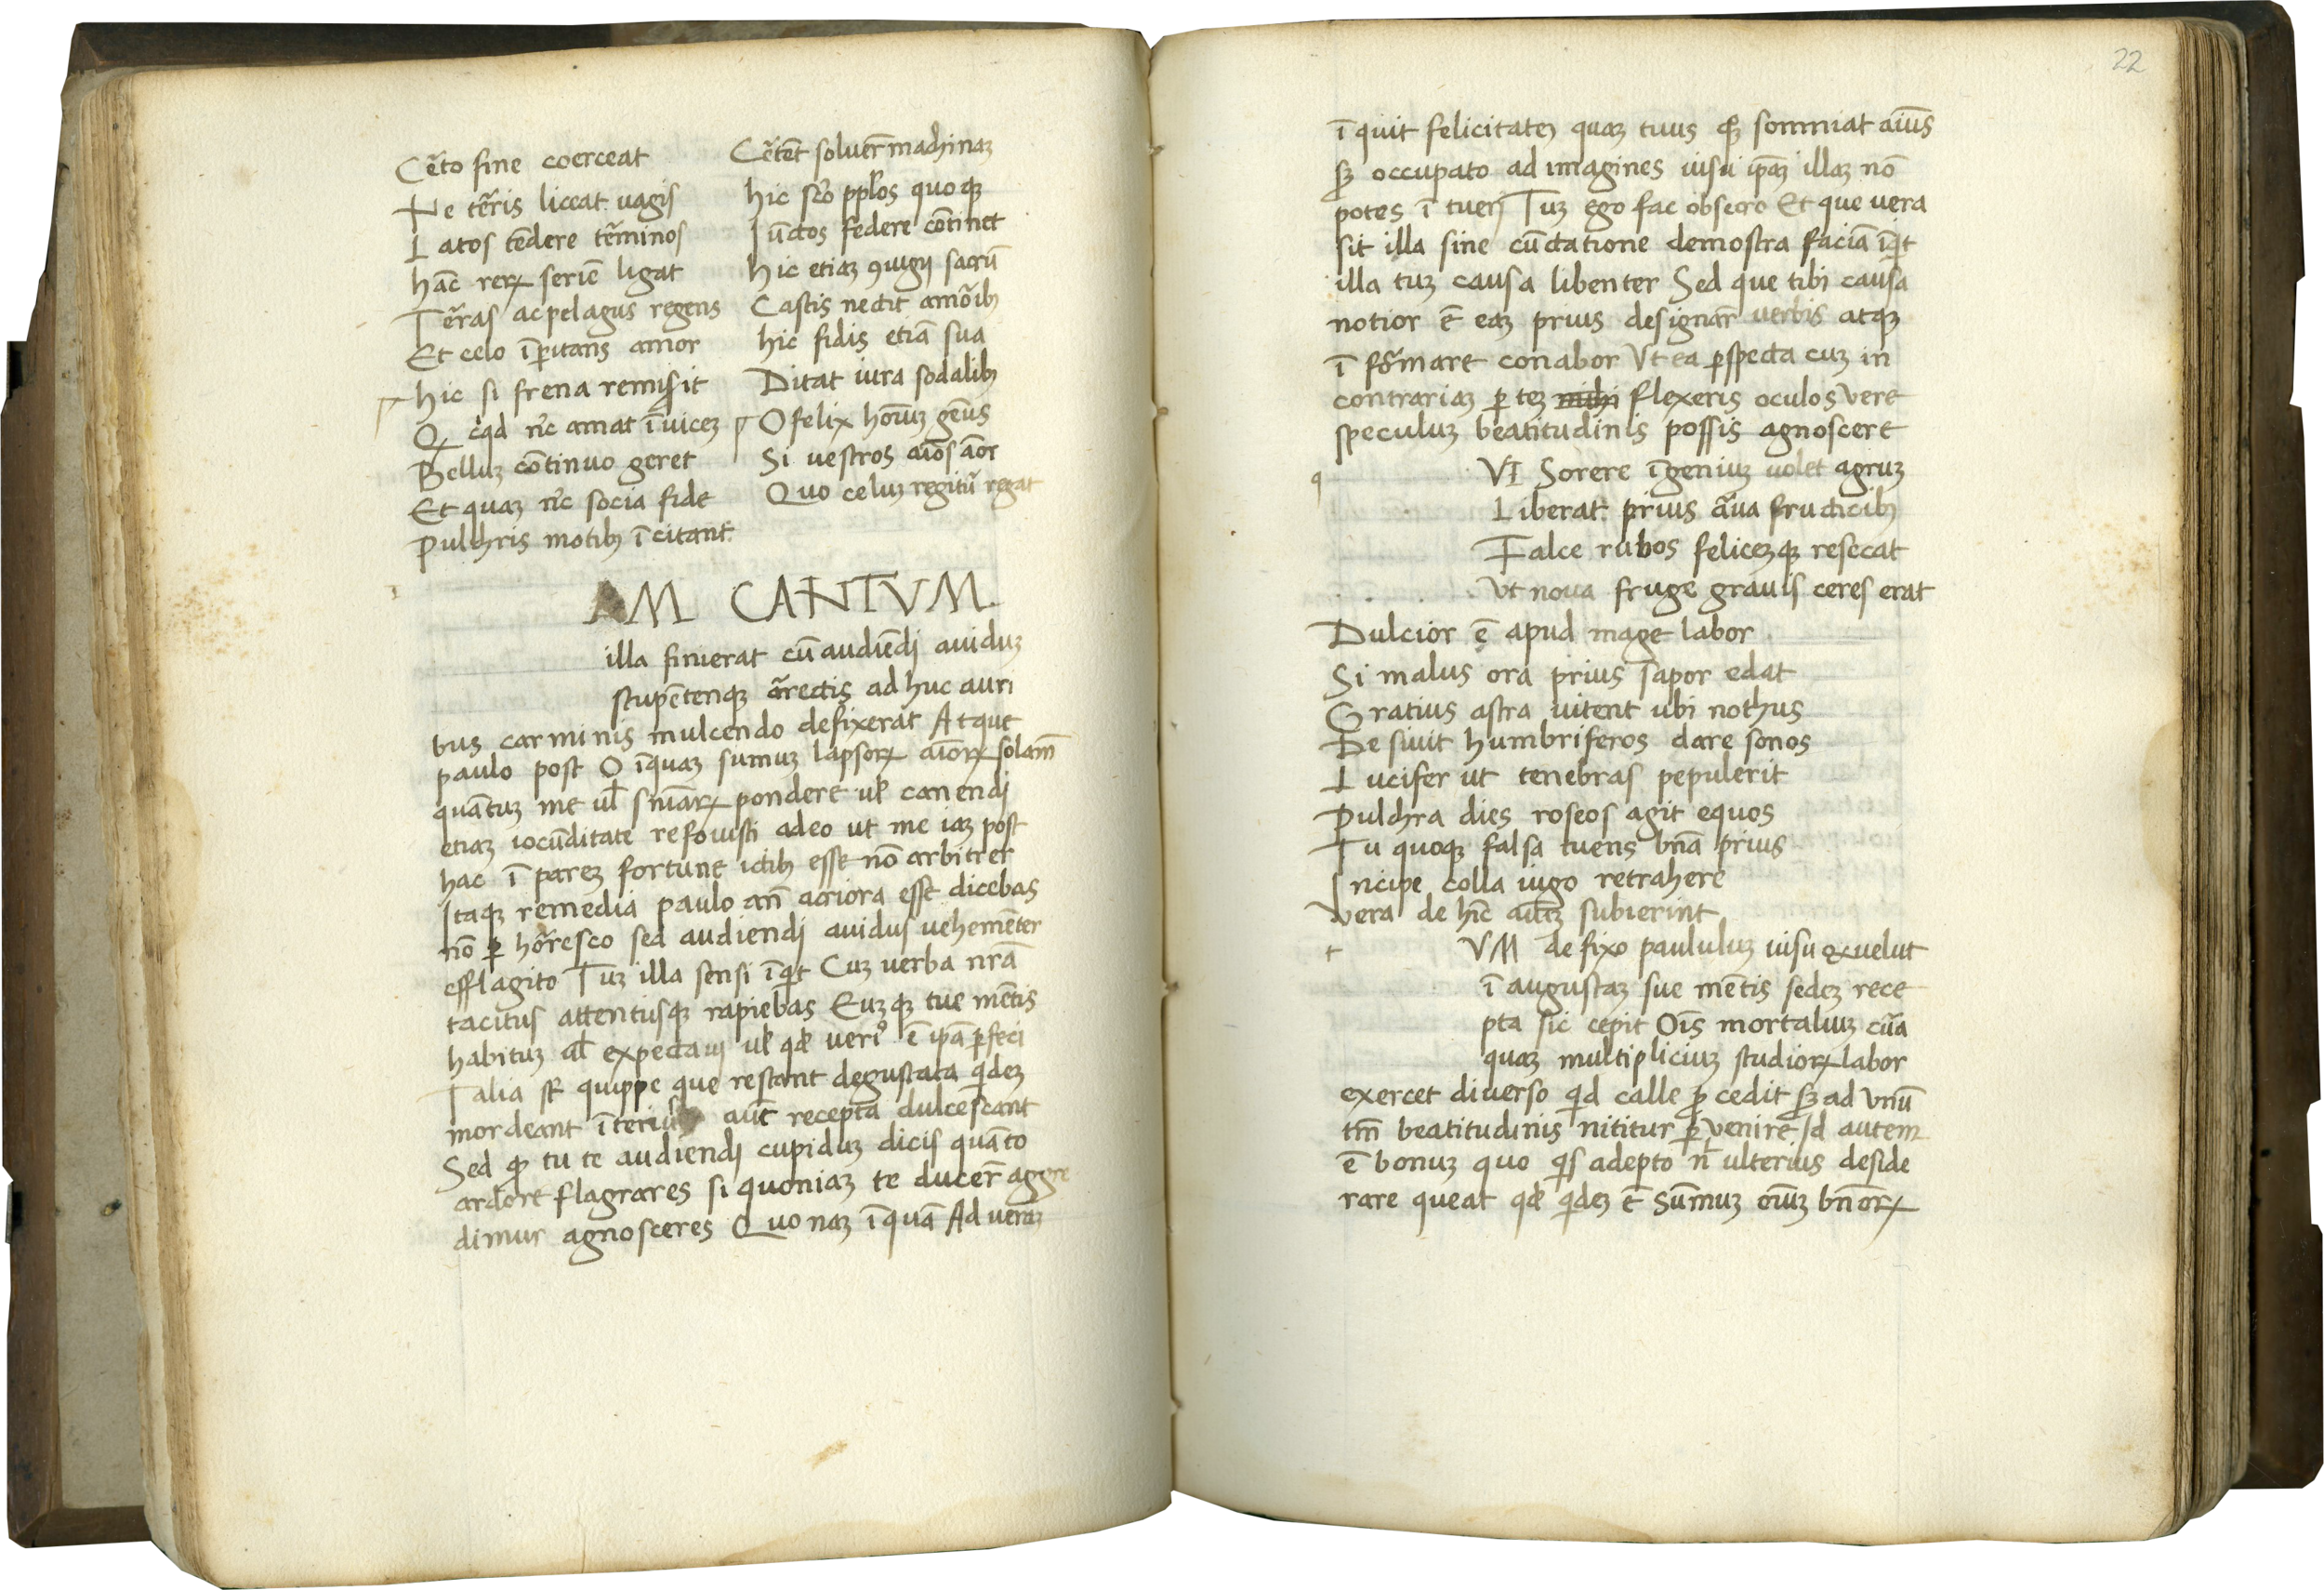 Cẽto fine coerceat
Ne tẽris liceat uagis
Latos tẽdere tẽminos
hãc reꝝ seriẽ ligat
Tẽras ac pelagus regens
Et celo ĩꝑitans amor
hic si frena remisit
Qͥcq̇d nc̄ amat ĩuiceꝫ
Belluꝫ cõtinuo geret
Et quaꝫ nc̄ socia fide
Pulchris motibꝫ ĩcitant
Cẽtẽt soluer̃ machinaꝫ
hic sc̃o ppl̃os quoqꝫ
Iũctos federe cõtinet
hic etiaꝫ ꝯiugij sacrũ
Castis nectit amõibꝫ
hic fidis etiã sua
Dictat iura sodalibꝫ
O felix hoĩuꝫ gẽus
Si uestros aĩos aõr
Quo celuꝫ regitũ regat
AM CANTVM.
illa finierat cũ audiẽdi auiduꝫ
stupẽtenqꝫ ãrectis ad huc auri
bus carminis mulcendo defixerat Atque
paulo post O ĩquaꝫ sumuꝫ lapsoꝝ aĩoꝝ solam̃
quãtuꝫ me ul̃ sn̄iaꝝ pondere ul̃ canendi
etiaꝫ iocũditate refouisti adeo ut me iaꝫ post
hac ĩ pareꝫ fortune ictibꝫ esse nõ arbitrer
Itaqꝫ remedia paulo an̄ acriora esse dicebas
nõ ꝑ hõresco sed audiendi auidus uehemẽter
efflagito Tuꝫ illa sensi ĩq̇t Cuꝫ uerba nr̃a
tacitus attentusqꝫ rapiebas Euꝫqꝫ tue mẽtis
habituꝫ ul̃ expectaui ul̃ qd̃ uerіꝰ ẽ ipã ꝑfeci
Talia st̃ quippe que restant degustata q̇deꝫ
mordeant ĩterius aut̃ recepta dulcescant
Sed ꝙ tu te audiendi cupiduꝫ dicis quãto
ardore flagrares si quoniaꝫ te ducer̃ aggre
dimur agnosceres Quo naꝫ ĩquã Ad ueraꝫ
22
ĩquit felicitateꝫ quaꝫ tuus qꝫ somniat aĩus
sꝫ occupato ad imagines uisu ip̃aꝫ illaꝫ nõ
potes ĩ tueri Tuꝫ ego fac obsecro Et que uera
sit illa sine cũctatione demostra faciã ĩq̇t
illa tuꝫ causa libenter Sed que tibi causa
notior ẽ eaꝫ prius designar̃ uerbis atqꝫ
ĩ fõmare conabor Vt ea ꝑspecta cuꝫ in
contrariaꝫ ꝑteꝫ flexeris oculos vere
speculuꝫ beatitudinis possis agnoscere
q VI Sorere ĩgeniuꝫ uolet agruꝫ
Liberat prius ãua fructicibꝫ
Falce rubos feliceꝫqꝫ resecat
Vt noua fruge grauis ceres erat
Dulcior ẽ apud mage labor
Si malus ora prius sapor edat
Gratius astra uitent ubi nothus
Desiuit humbriferos dare sonos
Lucifer ut tenebras pepulerit
Pulchra dies roseos agit equos
Tu quoqꝫ falsa tuens bñã prius
Incipe colla iugo retrahere
Vera de hĩc aĩuꝫ subierint
t VM de fixo paululuꝫ uisu & uelut
ĩ augustaꝫ sue mẽtis sedeꝫ rece
pta sic cepit Oĩs mortaliuꝫ cũa
quaꝫ multipliciuꝫ studioꝝ labor
exercet diuerso q̇d calle ꝓcedit sꝫ ad vnũ
tm̃ beatitudinis nititur ꝑvenire Id autem
ẽ bonuꝫ quo q̇s adepto n̄ ulterius deside
rare queat qd̃ q̇deꝫ ẽ sũmuꝫ oĩuꝫ bn̄oꝝ